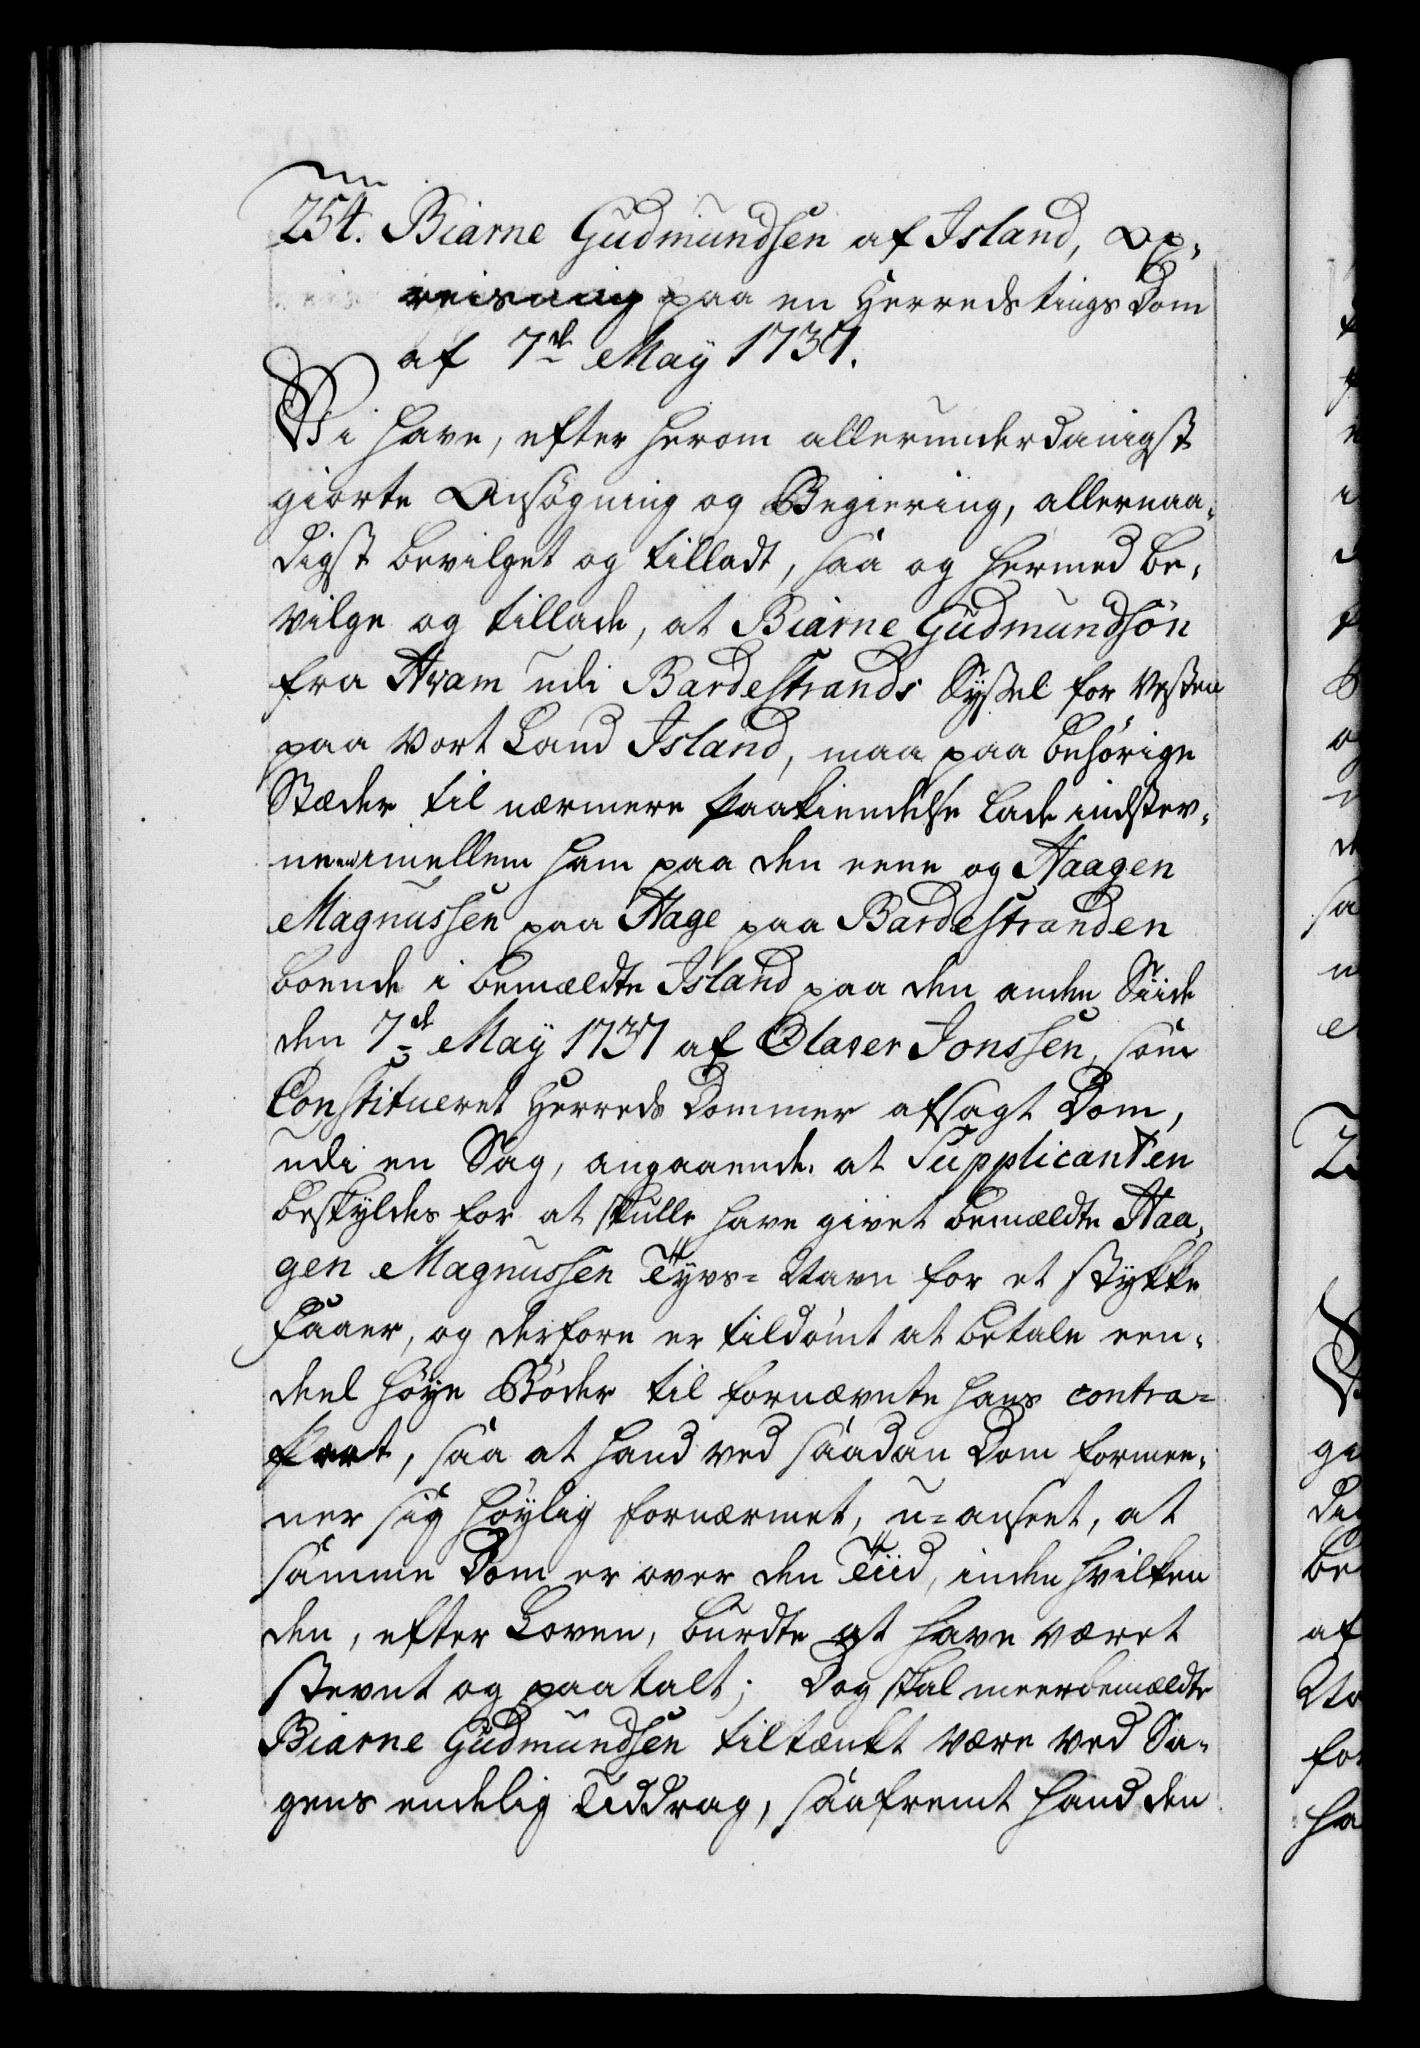 254. Biarne Gudmundsen af Island, Op-
reisning paa en Herredstings Dom
af 7de May 1737.
Vi have, efter herom allerunderdanigst
giorte Ansögning og Begiering, allernaa-
digst bevilget og tilladt, saa og hermed be-
vilge og tillade, at Biarne Gudmundsön
fra Hvam udi Bardestrands Syssel for Vesten
paa Vort Land Island, maa paa behörige
Stæder til nærmere Paakiendelse lade indstev-
ne en imellem ham paa den eene og Haagen
Magnussen paa Hage paa Bardestranden
boende i bemældte Island paa den anden Siide
den 7de May 1737 af Olaver Jonssen, som
Constitueret Herreds Dommer afsagt Dom,
udi en Sag, angaaende at Supplicanten
beskyldes for at skulle have givet bemældte Haa-
gen Magnussen Tyvs-Navn for et stykke
Faaer, og derfore er tildömt at betale een-
deel höye Böder til fornævnte hans contra-
part, saa at hand ved saadan Dom formee-
ner sig höylig fornærmet, u-anseet, at
samme Dom er over den Tiid, inden hvilken
den, efter Loven, burdte at have været
stevnt og paatalt; Dog skal meerbemældte
Biarne Gudmundsen tiltænkt være ved Sa-
gens endelig Uddrag, saafremt hand den